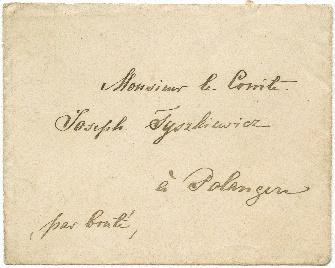 Monsieur le Comte
Joseph Tyszkiewicz
à Polangen
(par bonté)